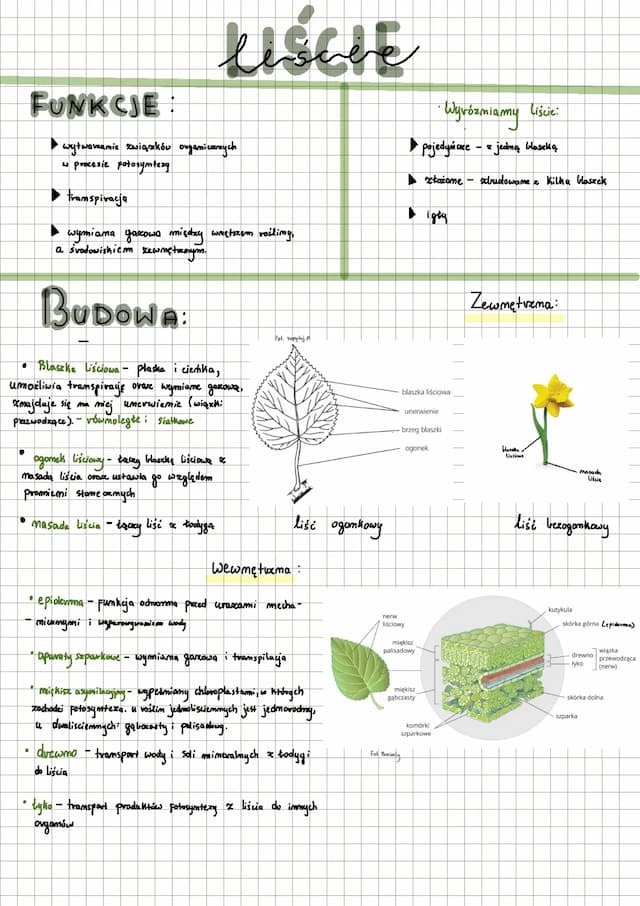 LIŚCIE
liście
FUNKCJE:
wytwarzanie związków organicznych
w procesie fotosyntezy
transpiracja
wymiana gazowa między wnętrzem rośliny,
a środowiskiem zewnętrznym.
Wyróżniamy liście:
pojedyńcze – z jedną blaszką
złożone – zbudowane z kilku blaszek
igły
BUDOWA:
Zewnętrzna:
Blaszka liściowa – płaska i cieńka,
umożliwia transpirację oraz wymianę gazową,
znajduje się na niej unerwienie (wiązki
przewodzące). – równoległe i siatkowe
ogonek liściowy – łączy blaszkę liściową z
nasadą liścia oraz ustawia go względem
promieni słonecznych
nasada liścia – łączy liść z łodygą
blaszka liściowa
unerwienie
brzeg blaszki
ogonek
liść ogonkowy
blaszka
liściowa
nasada
liścia
liść bezogonkowy
Wewnętrzna:
epiderma – funkcja ochronna przed urazami mecha-
– nicznymi i wyparowywaniem wody
aparaty szparkowe – wymiana gazowa i transpiracja
miękisz asymilacyjny – wypełniony chloroplastami, w których
zachodzi fotosynteza. u roślin jednoliściennych jest jednorodny,
u dwuliściennych: gąbczasty i palisadowy.
drewno – transport wody i soli mineralnych z łodygi
do liścia
łyko – transport produktów fotosyntezy z liścia do innych
organów
nerw
liściowy
miękisz
palisadowy
miękisz
gąbczasty
komórki
szparkowe
kutykula
skórka górna (epiderma)
drewno
łyko
wiązka
przewodząca
(nerw)
skórka dolna
szparka